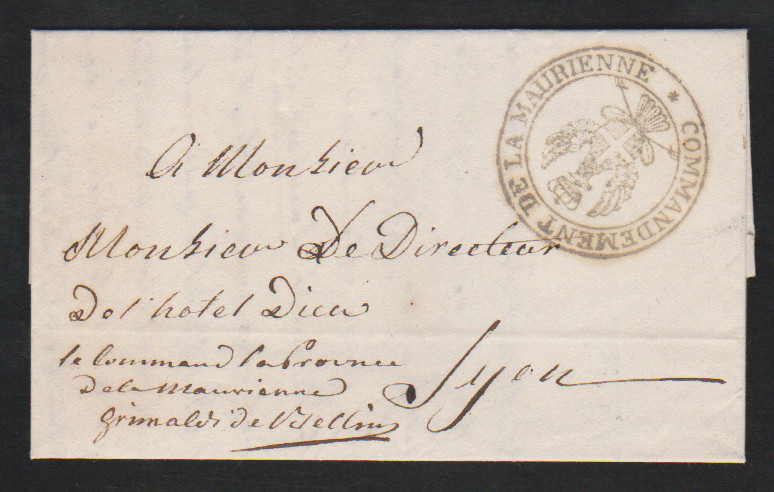 COMMANDEMENT DE LA MAURIENNE *
A Monsieur
Monsieur Le Directeur
De l'hotel Dieu
le Command la Province
de la Maurienne
Lyon
grimaldi de